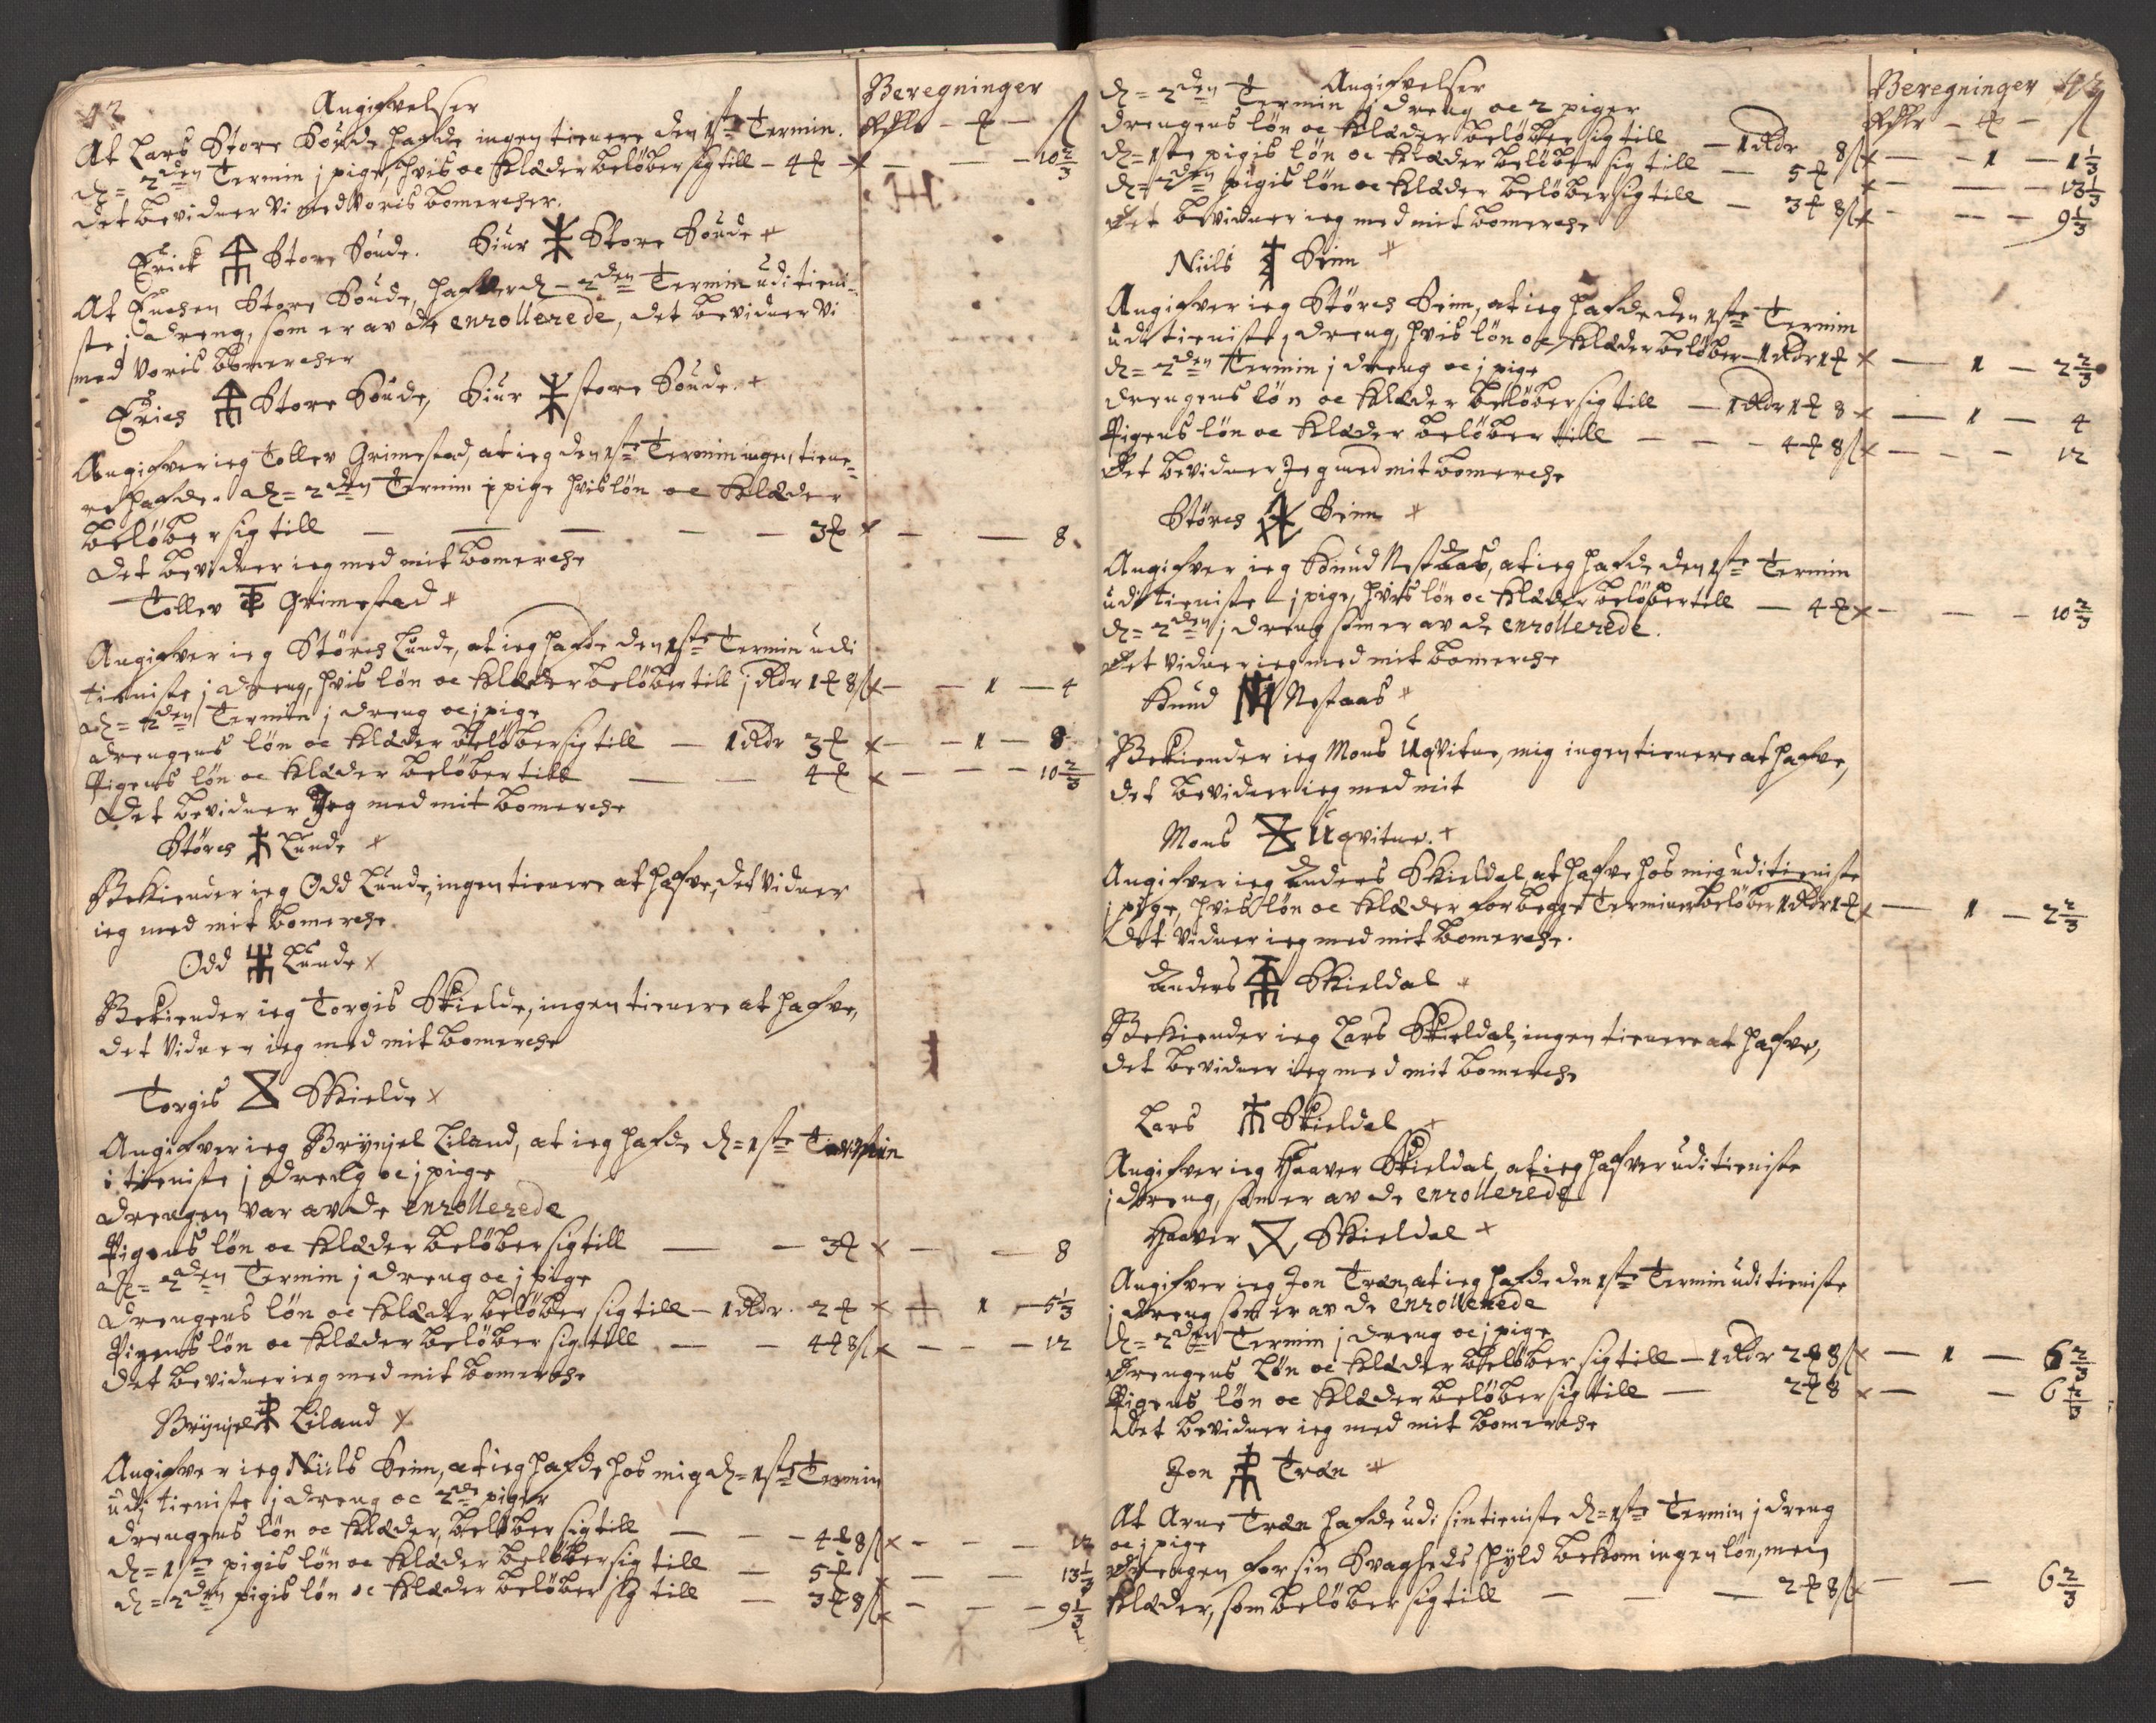 42
Angifvelser
Beregninger
At Lars Store Soude hafde ingen tienere den 1ste Termin.
Rdlr — ℔ — ß
d= 2den Termin j pige, hvis oc Klæder beløber sig till — 4 ℔ × — — — 10 2/3
det bevidner Vi med Voris bomercher.
Erick Store Soude. Siur Store Soude
At Store Soude, hafver d= 2den Termin udi tieni-
ste j dreng, som er av de enrollerede, det bevidner Vi
med Voris bomercher
Erich Store Soude, Siur store Soude.
Angifver ieg Tollev Grimestad, at ieg den 1ste Termin ingen tiene-
re hafde. d= 2den Termin j pige hvis løn oc Klæder
beløber sig till — — — — — 3 ℔ × — — 8
det bevidner ieg med mit bomerche
Tollev Grimestad
Angifver ieg Størch Lunde, at ieg hafde den 1ste Termin udi
tieniste j dreng, hvis løn oc Klæder beløber till j Rdr 1 ℔ 8 ß × — — 1 — 4
d= 2den Termin j dreng oc j pige
drengens løn oc Klæder beløber sig till — 1 Rdr 3 ℔ × — — 1 — 8
Pigens løn oc Klæder beløber till — — 4 ℔ × — — — 10 2/3
Det bevidner Jeg med mit bomerche
Størch Lunde
Bekiender ieg Odd Lunde, ingen tienere at hafve, det Vidner
ieg med mit bomerche
Odd Lunde
Bekiender ieg Torgis Skielde, ingen tienere at hafve,
det Vidner ieg med mit bomerche
Torgis Skielde
Angifver ieg Brynjel Liland, at ieg hafde d= 1ste Termin
i tieniste j dreng oc j pige
drengen var av de enrollerede
Pigens løn oc Klæder beløber sig till — — 3 ℔ × — — 8
d= 2den Termin j dreng oc j pige
drengens løn oc Klæder beløber sig till — 1 Rdr. 2 ℔ × — 1 — 5 1/3
Pigens løn oc Klæder beløber sig till — — 4 ℔ 8 ß × — — — 12
det bevidner ieg med mit bomerche
Brynjel Liland
Angifver ieg Niils Seim, at ieg hafde hos mig d= 1ste Termin
udj tieniste j dreng oc 2de piger
drengens løn oc Klæder, beløber sig till — — — 4 ℔ 8 ß × — — — 12
d= 1ste pigis løn oc Klæder beløber sig till — 5 ℔ × — — 13 1/3
d= 2den pigis løn oc Klæder beløber sig till — 3 ℔ 8 ß × — — — 9 1/3
Angifvelser
Beregninger
d= 2den Termin j dreng oc 2 piger
Rdlr — ℔ — ß
drengens løn oc Klæder beløber sig till — 1 Rdr 8 ß × — — 1 — 1 1/3
d= 1ste pigis løn oc Klæder beløber sig till — 5 ℔ × — — — 13 1/3
d= 2den pigis løn oc Klæder beløber sig till — 3 ℔ 8 ß × — — — 9 1/3
Det bevidner ieg med mit bomerche
Niils Seim
Angifver ieg Størch Seim, at ieg hafde den 1ste Termin
udi tieniste j dreng, hvis løn oc Klæder beløber — 1 Rdr 1 ℔ × — 1 — 2 2/3
d= 2den Termin j dreng oc j pige
drengens løn oc Klæder beløber sig till — 1 Rdr 1 ℔ 8 × — 1 — 4
Pigens løn oc Klæder beløber till — — — 4 ℔ 8 ß × — — — 12
Det bevidner Jeg med mit bomerche
Størch Seim
Angifver ieg Knud Nestaas, at ieg hafde den 1ste Termin
udi tieniste — j pige, hvis løn oc Klæder beløber till — 4 ℔ × — — — 10 2/3
d= 2den j dreng som er av de enrollerede.
Det Vidner ieg med mit bomerche
Knud Nestaas
Bekiender ieg Mons Uqvitne, mig ingen tienere at hafve,
det bevidner ieg med mit
Mons Uqvitne.
Angifver ieg Anders Skieldal, at hafve hos mig udi tieniste
j pige, hvis løn oc Klæder for begge Terminer beløber 1 Rdr 1 ℔ × — 1 — 2 2/3
Det Vidner ieg med mit bomerche.
Anders Skieldal
Bekiender ieg Lars Skieldal, ingen tienere at hafve,
det bevidner ieg med mit bomerche
Lars Skieldal
Angifver ieg Haaver Skieldal, at ieg hafver udi tieniste
j dreng, som er av de enrollerede
Haaver Skieldal
Angifver ieg Jon Træn, at ieg hafde den 1ste Termin udi tieniste
j dreng som er av de enrollerede
d= 2den Termin j dreng oc j pige
Drengens løn oc Klæder beløber sig till — 1 Rdr 2 ℔ 8 ß × — 1 — 6 2/3
Pigens løn oc Klæder beløber sig till — 2 ℔ 8 × — — 6 2/3
Det bevidner ieg med mit bomerche
Jon Træn
At Arne Træn hafde udi sin tieniste d= 1ste Termin j dreng
oc j pige
drengen for sin Svagheds skyld bekom ingen løn, men
Klæder, som beløber sig till — — — 2 ℔ 8 ß × — — 6 2/3